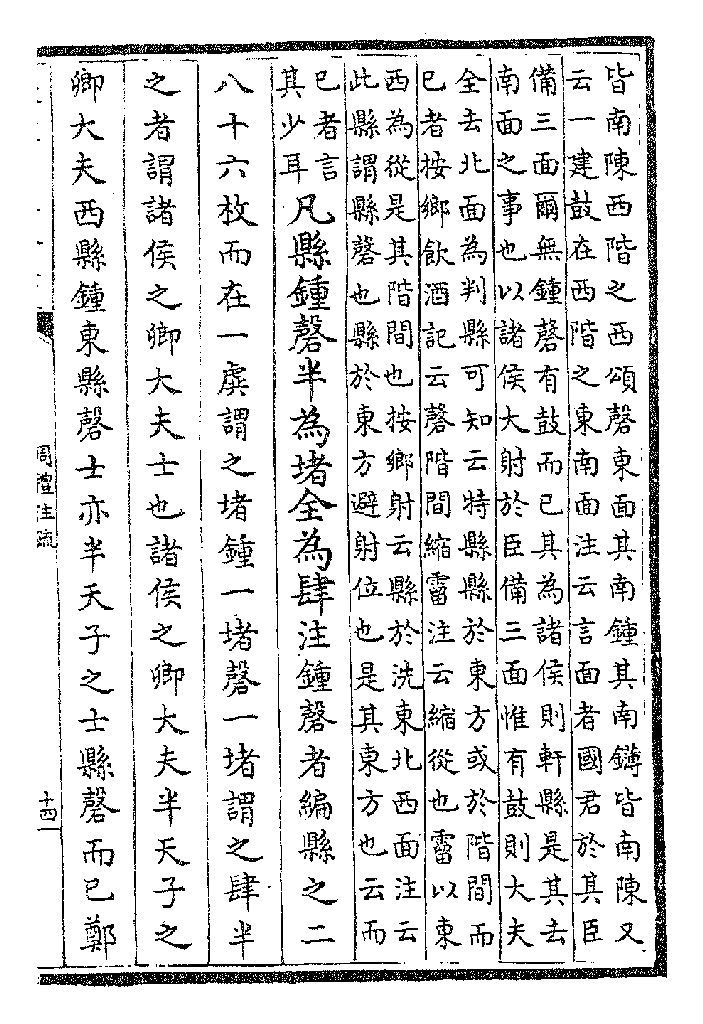 皆南陳西階之西頌磬東面其南鍾其南鑮皆南陳又
云一建鼓在西階之東南面注云言面者國君於其臣
備三面爾無鍾磬有鼓而已其為諸侯則軒縣是其去
南面之事也以諸侯大射於臣備三面惟有鼓則大夫
全去北面為判縣可知云特縣縣於東方或於階間而
已者按鄉飲酒記云磬階間縮霤注云縮從也霤以東
西為從是其階間也按鄉射云縣於洗東北西面注云
此縣謂縣磬也縣於東方避射位也是其東方也云而
已者言
其少耳凡縣鍾磬半為堵全為肆注鍾磬者編縣之二
八十六枚而在一虡謂之堵鍾一堵磬一堵謂之肆半
之者謂諸侯之卿大夫士也諸侯之卿大夫半天子之
卿大夫西縣鍾東縣磬士亦半天子之士縣磬而已鄭
周禮注疏
十四